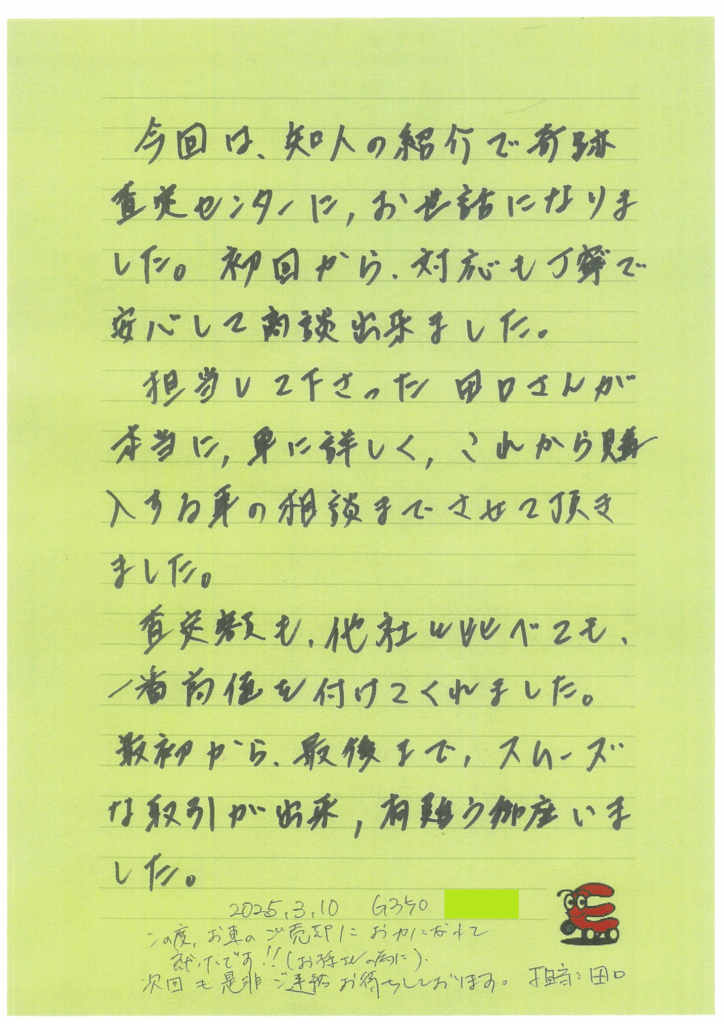 今回は、知人の紹介で奇跡
査定センターに,お世話になりま
した。初回から、対応も丁寧で
安心して商談出来ました。
担当して下さった田口さんが
本当に,車に詳しく,これから購
入する車の相談までさせて頂き
ました。
査定額も、他社と比べても、
一番高値を付けてくれました。
最初から、最後まで,スムーズ
な取引が出来,有難う御座いま
した。
2025.3.10 G350
この度、お車のご売却に お力になれて
次回も是非ご連絡お待ちしております。 担当:田口